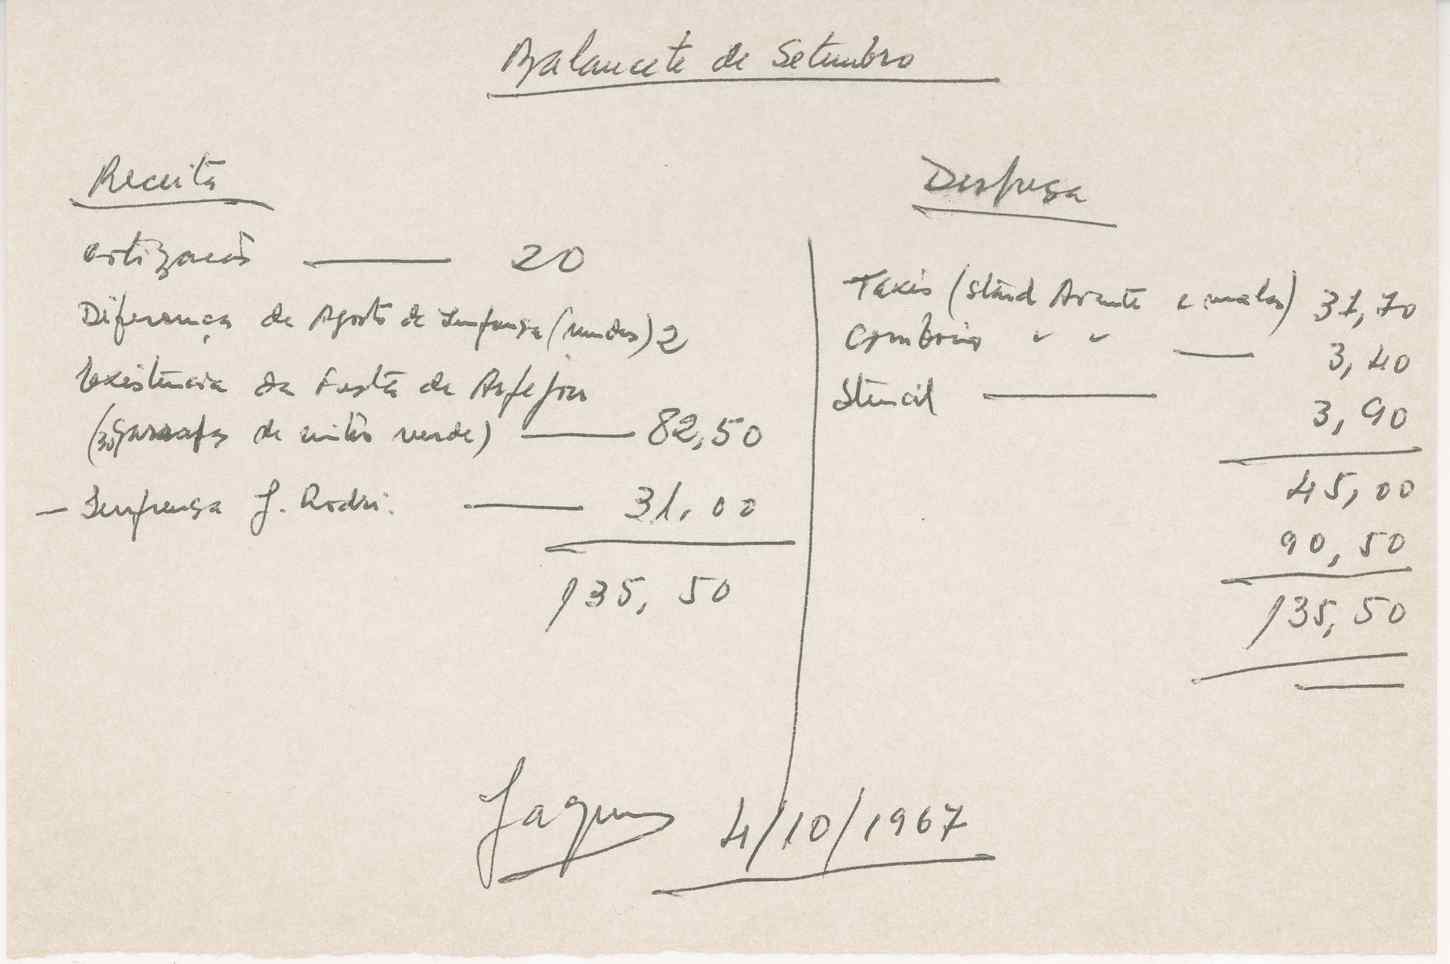 Balancete de Setembro
Receita
Cotização 20
Diferença de Agosto de Imprensa (vendas) 2
Existência da Festa de
(30 garrafas de vinho verde) 82,50
- Imprensa J. Rodri. 31,00
135,50
Despesa
Taxis (stand Avante e malas) 37,70
Comboios " " 3,40
Stencil 3,90
45,00
90,50
135,50
Jaques 4/10/1967